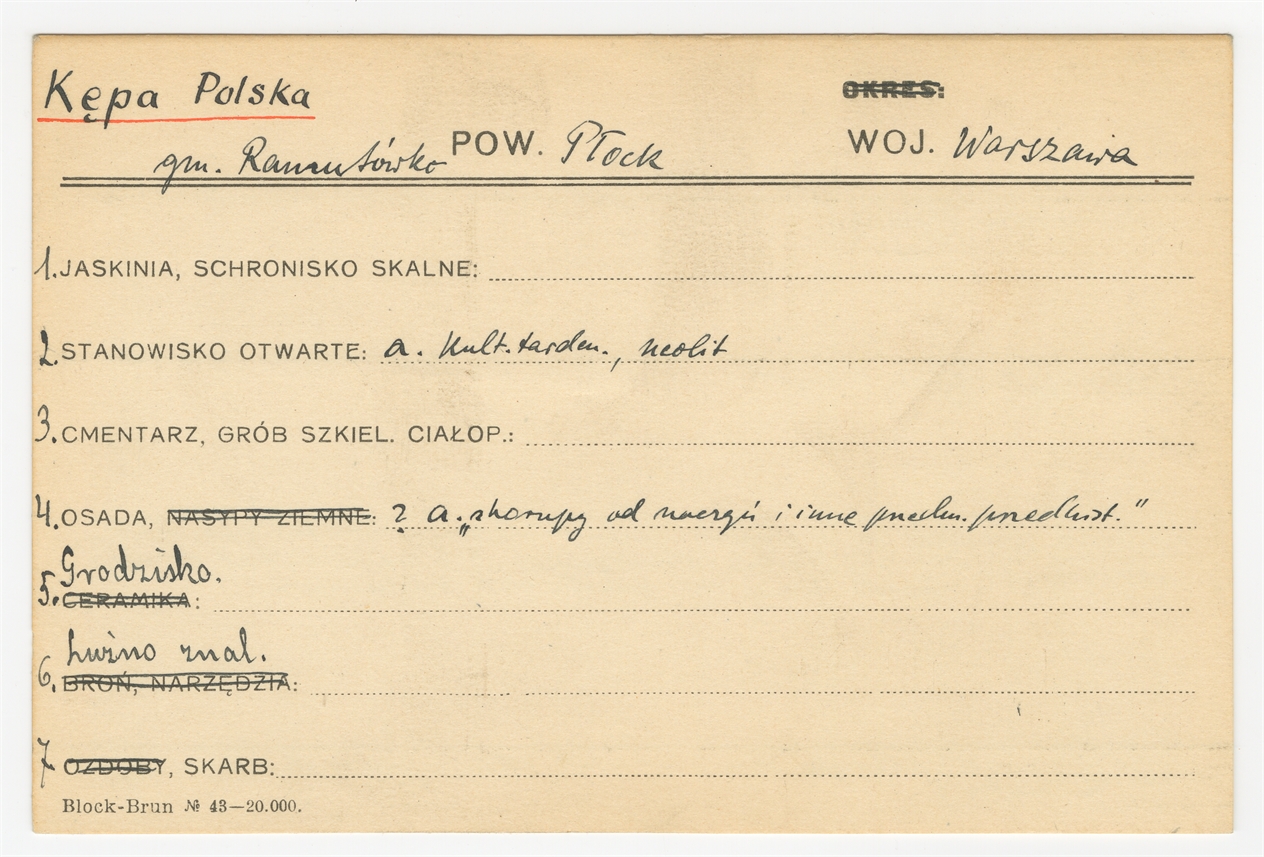 Kępa Polska
OKRES:
gm. Ramutówko POW. Płock WOJ. Warszawa
1. JASKINIA, SCHRONISKO SKALNE:
2. STANOWISKO OTWARTE: a. Kult. tarden., neolit
3. CMENTARZ, GRÓB SZKIEL. CIAŁOP.:
4. OSADA, NASYPY ZIEMNE: ? a. „skorupy od naczyń i inne przedm. przedhist."
Grodzisko.
5. CERAMIKA:
Luźno znal.
6. BROŃ, NARZĘDZIA:
7 OZDOBY, SKARB:
Block-Brun № 43—20.000.